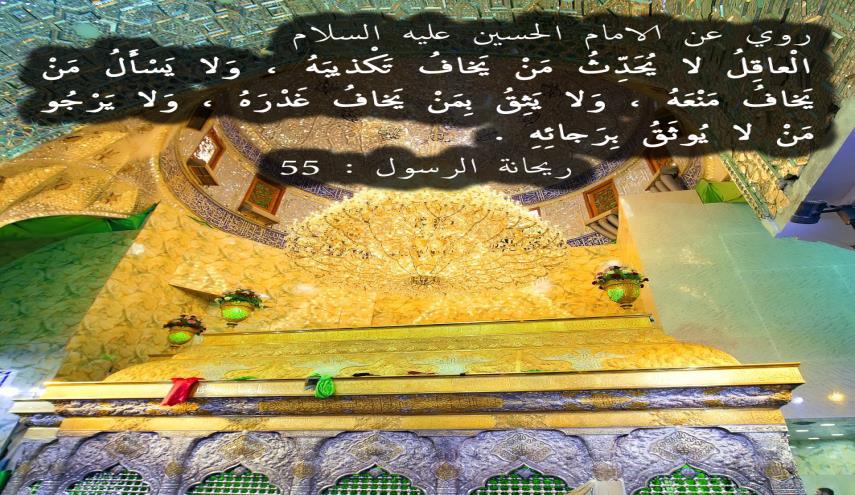 روي عن الامام الحسين عليه السلام
الْعاقِلُ لا يُحَدِّثُ مَنْ يَخافُ تَكْذيبَهُ ، وَلا يَسْأَلُ مَنْ
يَخافُ مَنْعَهُ ، وَلا يَثِقُ بِمَنْ يَخافُ غَدْرَهُ ، وَلا يَرْجُو
مَنْ لا يُوثَقُ بِرَجائِهِ .
ريحانة الرسول : 55